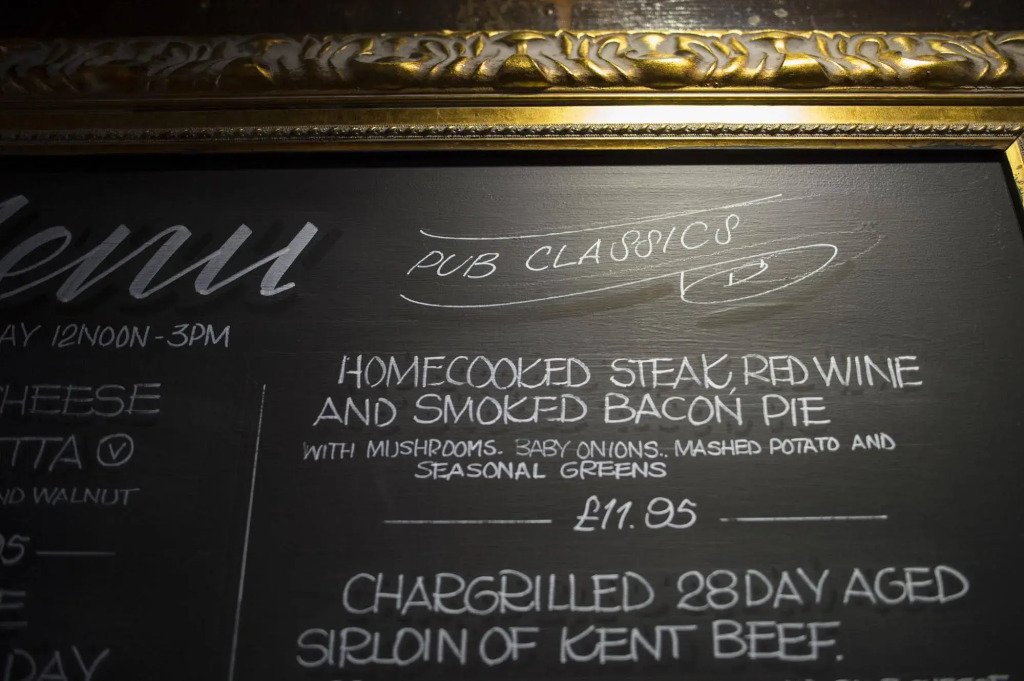 Menu
PUB CLASSICS
12NOON-3PM
HOMECOOKED STEAK, RED WINE
AND SMOKED BACON PIE
WITH MUSHROOMS. BABY ONIONS.. MASHED POTATO AND
SEASONAL GREENS
£11.95
CHARGRILLED 28 DAY AGED
SIRLOIN OF KENT BEEF.
CHEESE
V
WALNUT
DAY